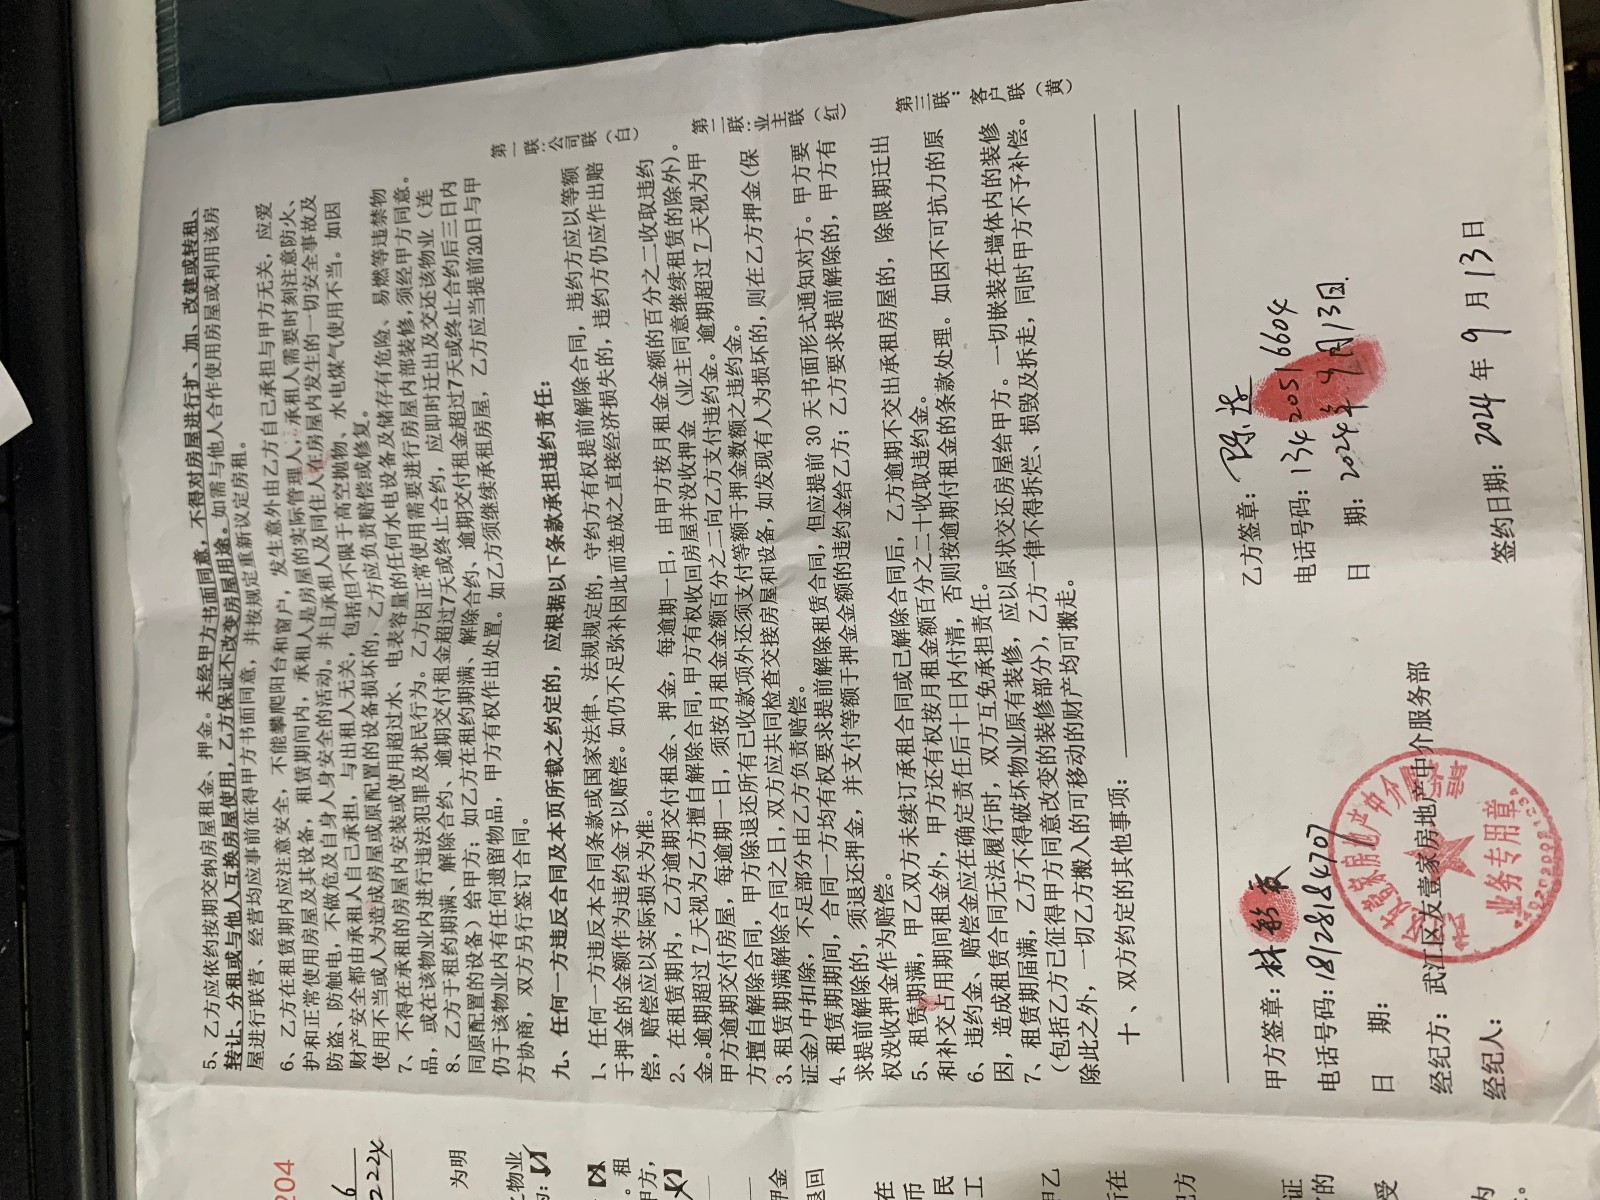 5、乙方应依约按期交纳房屋租金、押金。未经甲方书面同意，不得对房屋进行扩、加、改建或转租、
转让、分租或与他人互换房屋使用，乙方保证不改变房屋用途。如需与他人合作使用房屋或利用该房
屋进行联营、经营均应事前征得甲方书面同意，并按规定重新议定房租。
6、乙方在租赁期内应注意安全，不能攀爬阳台和窗户，发生意外由乙方自己承担与甲方无关，应爱
护和正常使用房屋及其设备，租赁期间内，承租人是房屋的实际管理人，承租人需要时刻注意防火、
防盗、防触电，不做危及自身人身安全的活动。并且承租人及同住人在房屋内发生的一切安全事故及
财产安全都由承租人自己承担，与出租人无关，包括但不限于高空抛物、水电煤气使用不当。如因
使用不当或人为造成房屋或原配置的设备损坏的，乙方应负责赔偿或修复。
7、不得在承租的房屋内安装或使用超过水、电表容量的任何水电设备及储存有危险、易燃等违禁物
品，或在该物业内进行违法犯罪及扰民行为。乙方因正常使用需要进行房屋内部装修，须经甲方同意。
8、乙方于租约期满、解除合约、逾期交付租金超过7天或终止合约，应即时迁出及交还该物业（连
同原配置的设备）给甲方；如乙方在租约期满、解除合约、逾期交付租金超过7天或终止合约后三日内
仍于该物业内有任何遗留物品，甲方有权作出处置。如乙方须继续承租房屋，乙方应当提前30日与甲
方协商，双方另行签订合同。
九、任何一方违反合同及本页所载之约定的，应根据以下条款承担违约责任：
1、任何一方违反本合同条款或国家法律、法规规定的，守约方有权提前解除合同，违约方应以等额
于押金的金额作为违约金予以赔偿。如仍不足弥补因此而造成之直接经济损失的，违约方仍应作出赔
偿，赔偿应以实际损失为准。
2、在租赁期内，乙方逾期交付租金、押金，每逾期一日，由甲方按月租金金额的百分之二收取违约
金。逾期超过 7 天视为乙方擅自解除合同，甲方有权收回房屋并没收押金（业主同意继续租赁的除外）。
甲方逾期交付房屋，每逾期一日，须按月租金金额百分之二向乙方支付违约金。逾期超过 7 天视为甲
方擅自解除合同，甲方除退还所有已收款项外还须支付等额于押金数额之违约金。
3、租赁期满解除合同之日，双方应共同检查交接房屋和设备，如发现有人为损坏的，则在乙方押金（保
证金）中扣除，不足部分由乙方负责赔偿。
4、租赁期期间，合同一方均有权要求提前解除租赁合同，但应提前 30 天书面形式通知对方。甲方要
求提前解除的，须退还押金，并支付等额于押金金额的违约金给乙方；乙方要求提前解除的，甲方有
权没收押金作为赔偿。
5、租赁期满，甲乙双方未续订承租合同或已解除合同后，乙方逾期不交出承租房屋的，除限期迁出
和补交占用期间租金外，甲方还有权按月租金额百分之二十收取违约金。
6、违约金、赔偿金应在确定责任后十日内付清，否则按逾期付租金的条款处理。如因不可抗力的原
因，造成租赁合同无法履行时，双方互免承担责任。
7、租赁期届满，乙方不得破坏物业原有装修，应以原状交还房屋给甲方。一切嵌装在墙体内的装修
（包括乙方已征得甲方同意改变的装修部分），乙方一律不得拆烂、损毁及拆走，同时甲方不予补偿。
除此之外，一切乙方搬入的可移动的财产均可搬走。
十、双方约定的其他事项：
甲方签章：林
乙方签章：陈
电话号码：18128184707
电话号码：134 2051 6604
日 期：
日 期：2024年9月13日.
经纪方：武江区友壹家房地产中介服务部
经纪人：
签约日期：2024 年 9 月 13 日
业务专用章
第一联：公司联（白）
第二联：业主联（红）
第三联：客户联（黄）
204